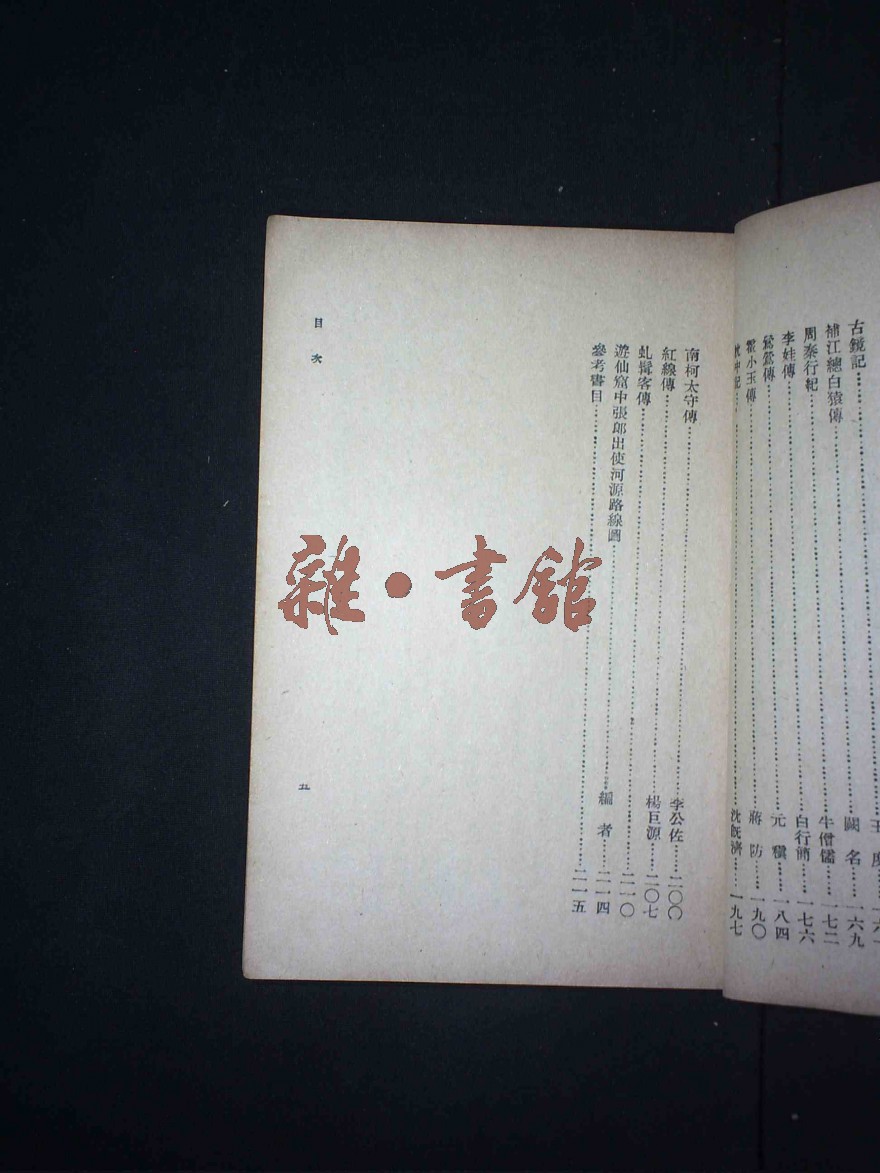 古鏡記……王度……一六一
補江總白猿傳……闕名……一六九
周秦行紀……牛僧孺……一七二
李娃傳……白行簡……一七六
鶯鶯傳……元稹……一八四
霍小玉傳……蔣防……一九〇
枕中記……沈既濟……一九七
南柯太守傳……李公佐……二〇〇
紅線傳……楊巨源……二〇七
虬髯客傳……二一〇
遊仙窟中張郎出使河源路線圖……編者……二一四
參考書目……二一五
目次
五
雜·書館